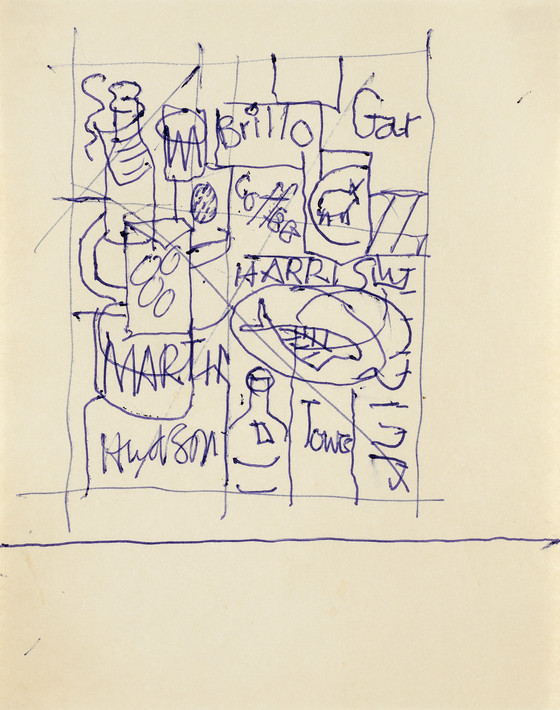 Brillo
Gar
Coffee
HARRIS
MARTIN
Hudson
Towe